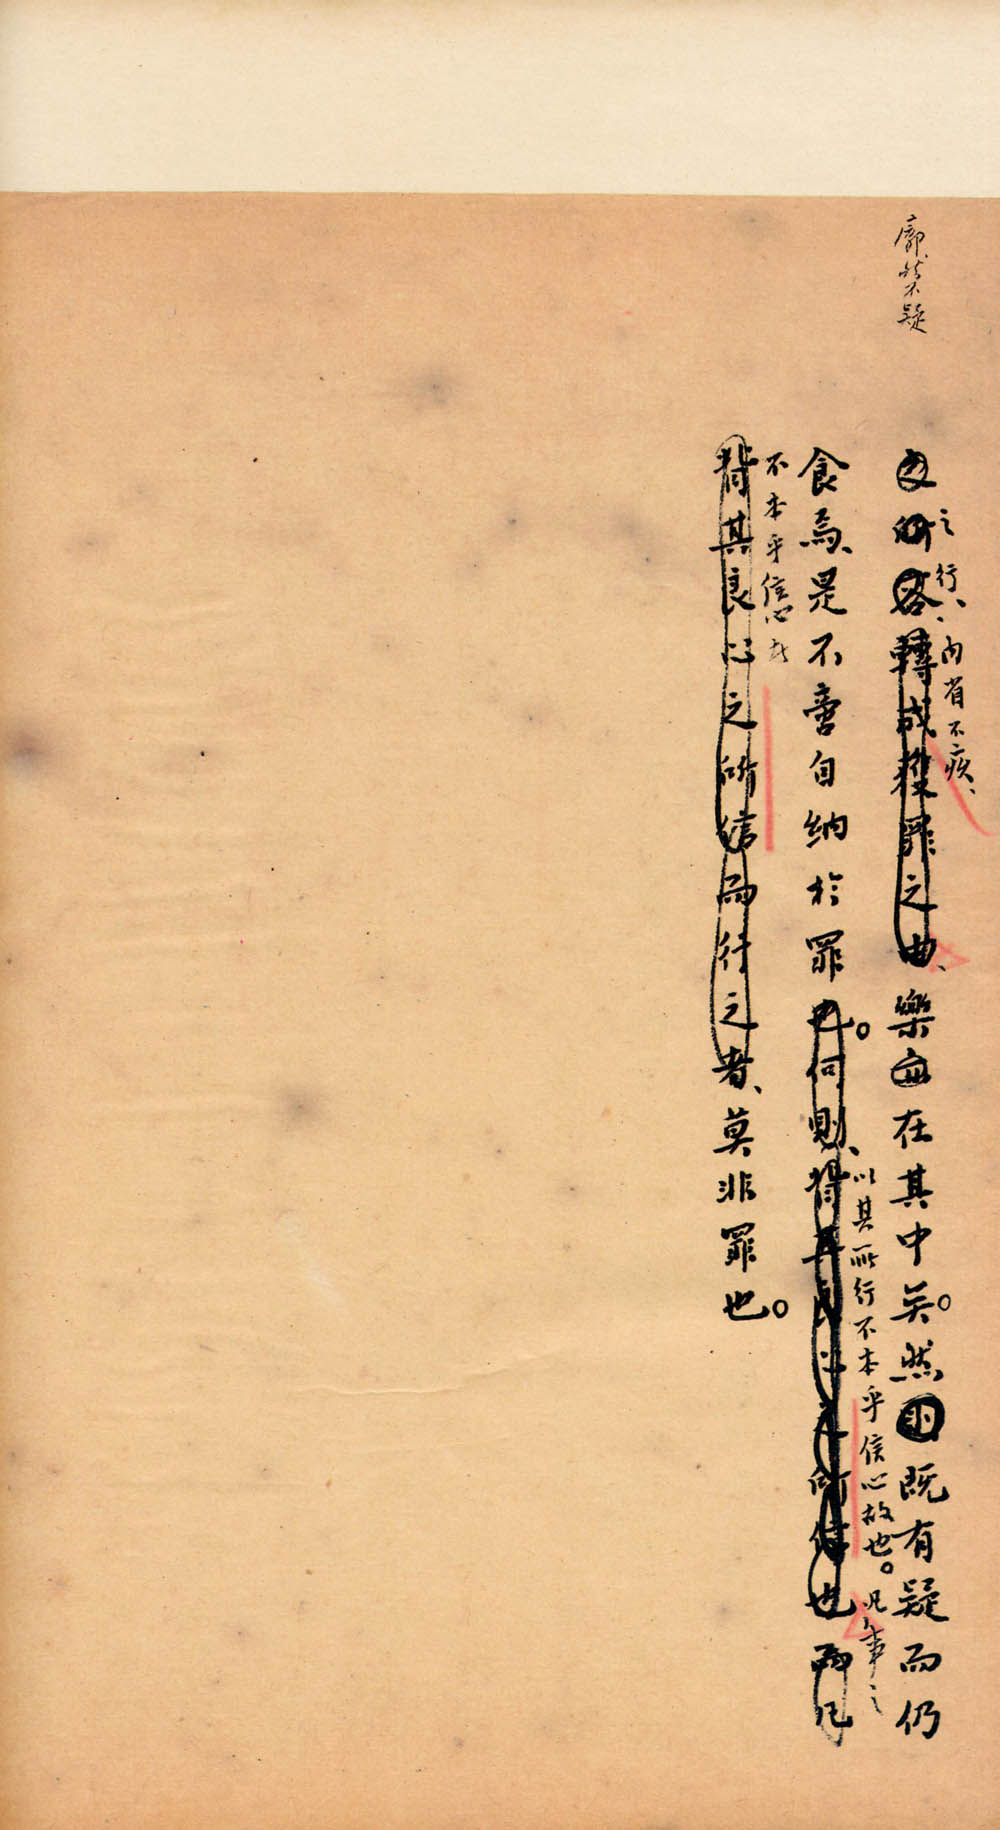 廓然不疑
之所咎轉成獲罪之由、樂亦在其中矣。然則既有疑而仍
之行、內省不疚、
食焉、是不啻自納於罪也。何則、背其良心之所信也而凡
以其所行不本乎信心故也。凡事之
背其良心之所信而行之者、莫非罪也。
不本乎信心